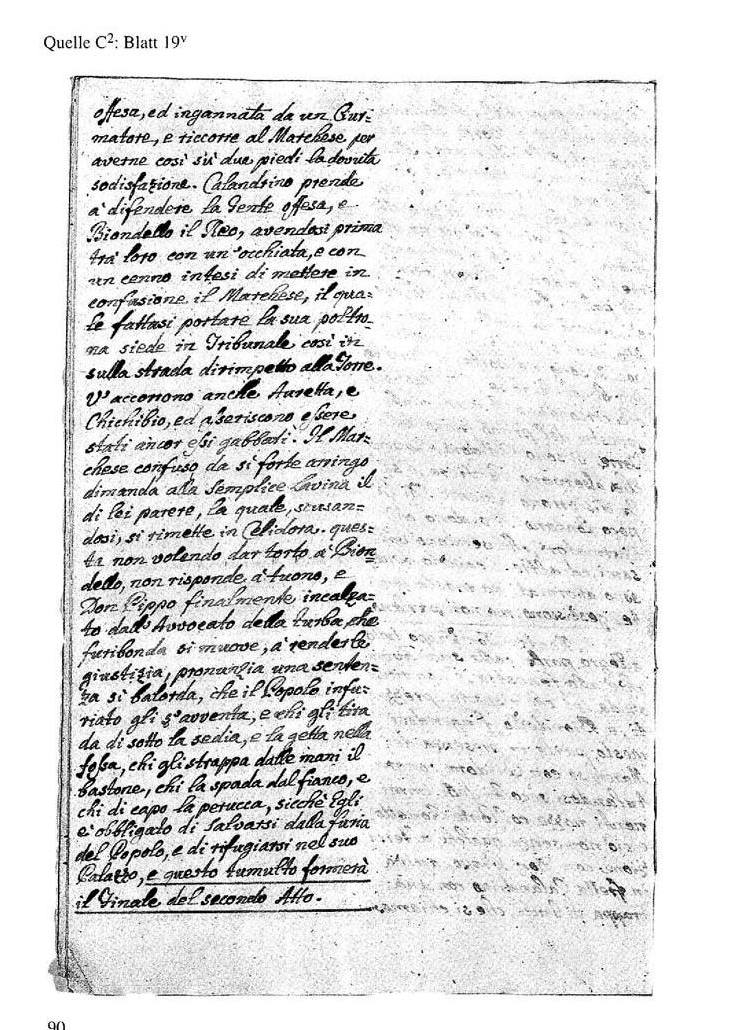 Quelle C²: Blatt 19ᵛ
offesa, ed ingannata da un Ciur-
matore, e riccorre al Marchese per
averne così sù due piedi la dovuta
sodisfazione. Calandrino prende
à difendere la Gente offesa, e
Biondello il Reo, avendosi prima
trà loro con un'occhiata, e con
un cenno intesi di mettere in
confusione il Marchese, il qua=
le fattasi portare la sua poltro=
na siede in Tribunale così in
sulla strada dirimpetto alla Torre.
V'accorrono anche Auretta, e
Chichibio, ed asseriscono essere
stati ancor essi gabbati. Il Mar=
chese confuso da sì forte arringo
dimanda alla semplice Lavina il
di lei parere, la quale, scusan=
dosi, si rimette in Celidora. ques=
ta non volendo dar torto à Bion=
dello, non risponde à tuono, e
Don Pippo finalmente incalza=
to dall'Avvocato della turba, che
furibonda si muove, à renderle
giustizia, pronunzia una senten=
za sì balorda, che il Popolo infu=
riato gli s'avventa, e chi gli tira
da di sotto la sedia, e la getta nella
fossa, chi gli strappa dalle mani il
bastone, chi la spada dal fianco, e
chi di capo la perucca, sicchè Egli
e' obbligato di salvarsi dalla furia
del Popolo, e di rifugiarsi nel suo
Palazzo, e questo tumulto formerà
il Finale del secondo Atto.
90